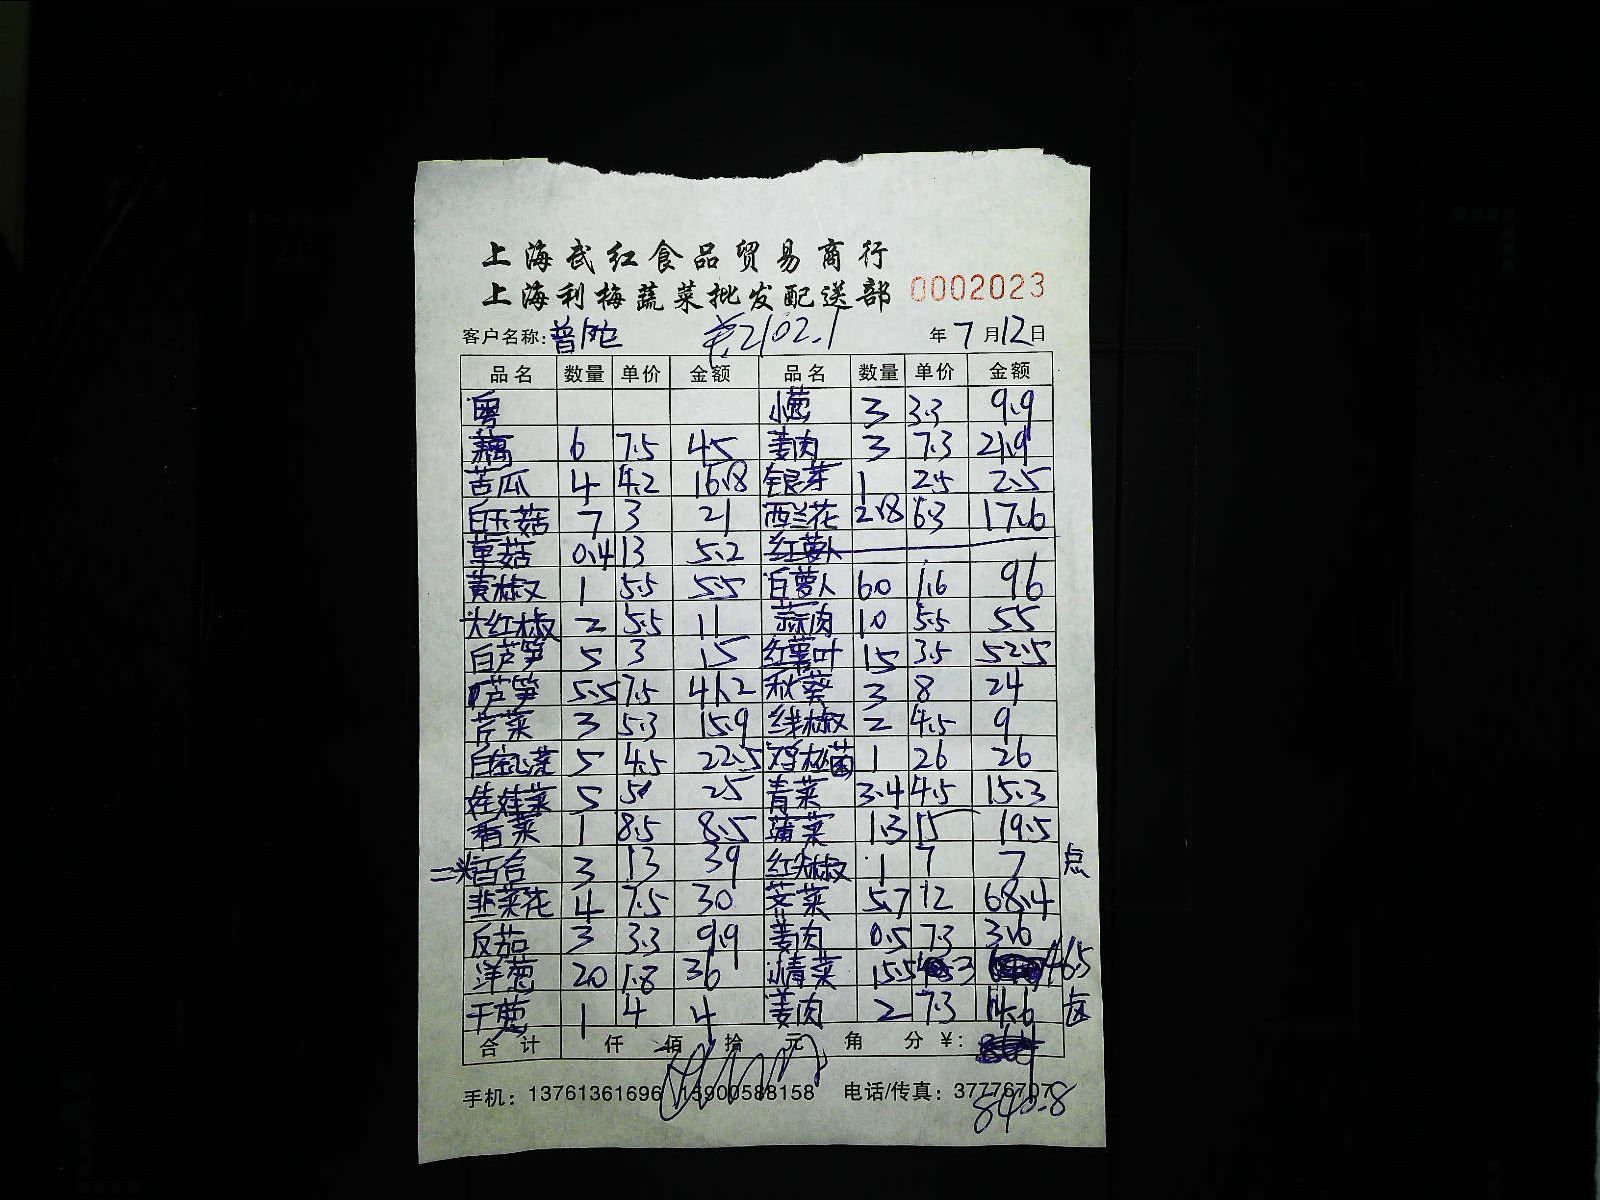 上海武红食品贸易商行
上海利梅蔬菜批发配送部 0002023
客户名称:普陀 ¥2102.1 年7月12日
品名 数量 单价 金额 品名 数量 单价 金额
粤 小葱 3 3.3 9.9
藕 6 7.5 45 姜肉 3 7.3 21.9
苦瓜 4 4.2 16.8 银芽 1 2.5 2.5
白玉菇 7 3 21 西兰花 2.8 6.3 17.6
草菇 0.4 13 5.2 红萝卜
黄椒 1 5.5 5.5 白萝卜 60 1.6 96
大红椒 2 5.5 11 蒜肉 10 5.5 55
白芦笋 5 3 15 红薯叶 15 3.5 52.5
芦笋 5.5 7.5 41.2 秋葵 3 8 24
芹菜 3 5.3 15.9 线椒 2 4.5 9
5 4.5 22.5 鸡枞菌 1 26 26
娃娃菜 5 5 25 青菜 3.4 4.5 15.3
香菜 1 8.5 8.5 蒲菜 1.3 15 19.5
二头百合 3 13 39 红尖椒 1 7 7 点
韭菜花 4 7.5 30 芥菜 5.7 12 68.4
反茄 3 3.3 9.9 姜肉 0.5 7.3 3.6
洋葱 20 1.8 36 菜 15.5 3 46.5
干葱 1 4 4 姜肉 2 7.3 14.6
合计 仟 佰 拾 元 角 分 ¥:
手机: 13761361696 15900588158 电话/传真: 37776707
840.8